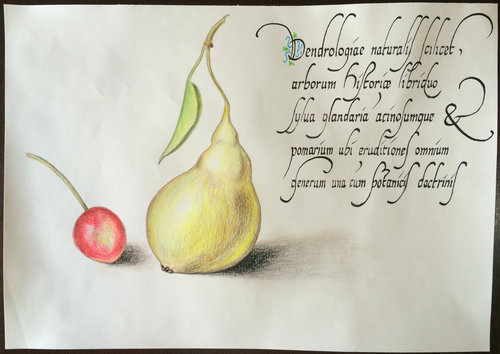 Dendrologiae naturalis scilicet,
arborum historiæ libriduo
sylua glandaria acinosumque &
pomarium ubi eruditiones omnium
generum una cum botanicis doctrinis